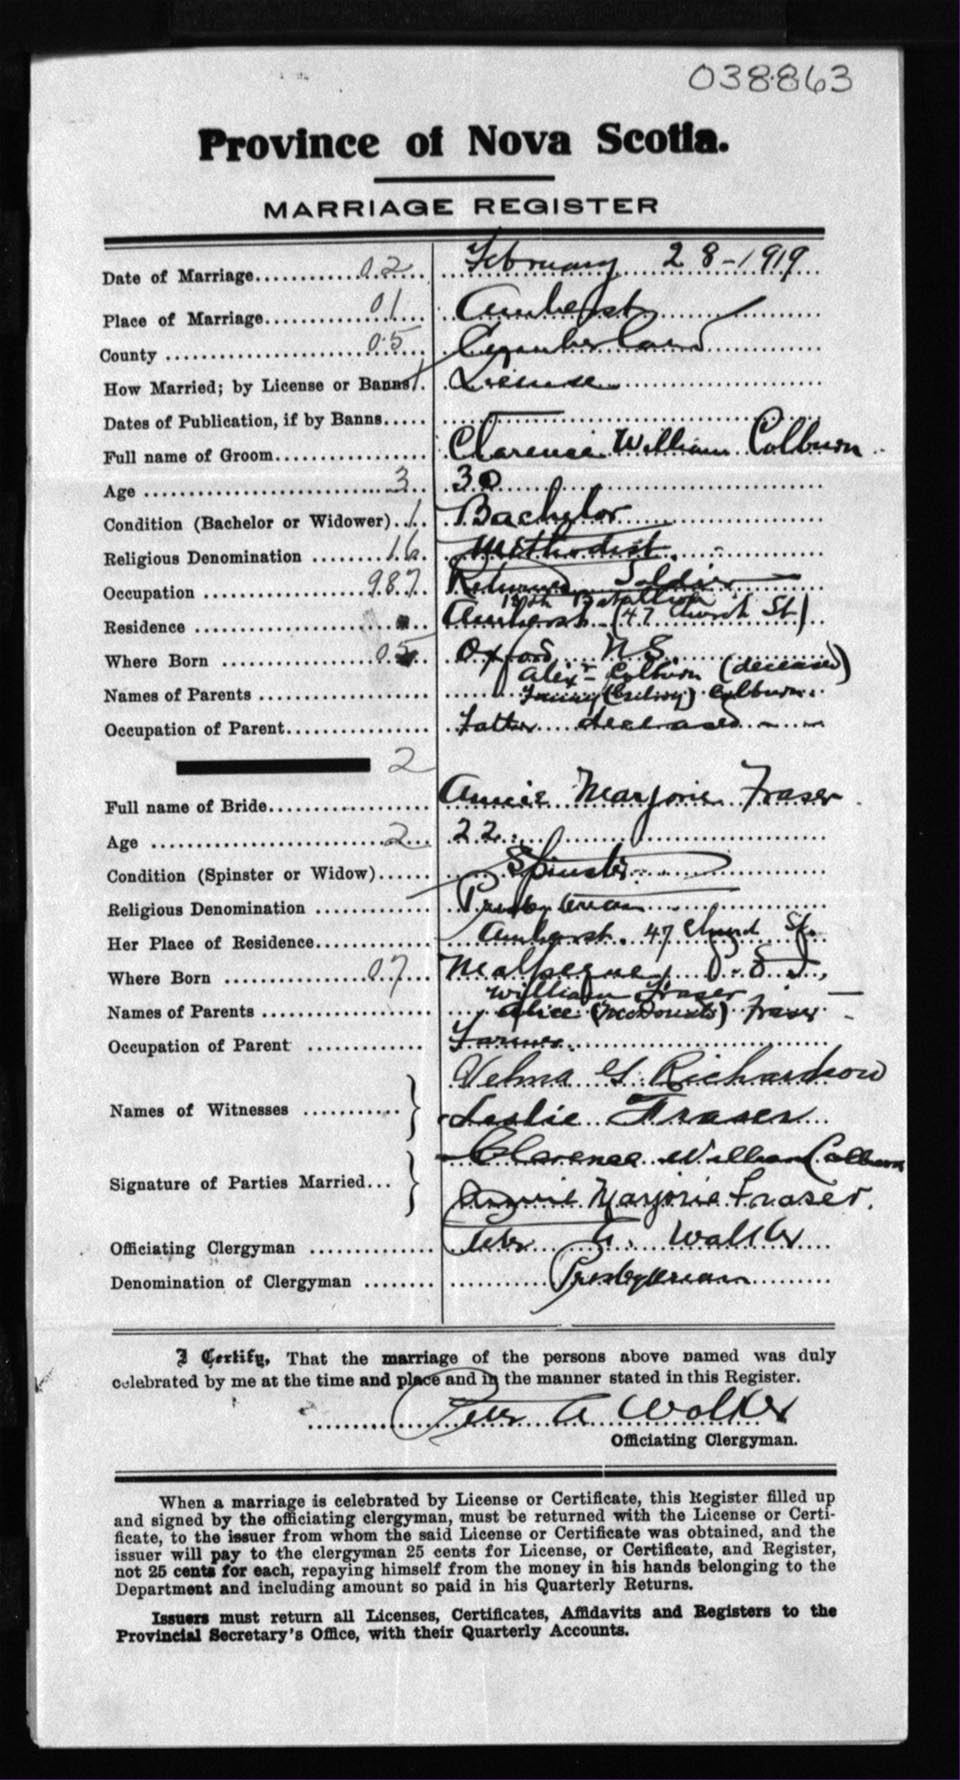 038863
Province of Nova Scotia.
MARRIAGE REGISTER
Date of Marriage 02 February 28-1919
Place of Marriage 01 Amherst
County 05 Cumberland
How Married; by License or Banns 1 License
Dates of Publication, if by Banns
Full name of Groom Clarence William Colburn
Age 3 30
Condition (Bachelor or Widower) 1 Bachelor
Religious Denomination 16 Methodist
Occupation 987 Returned Soldier
Battalion
Residence Amherst (47 Church St)
Where Born 05 Oxford N.S.
Alexr Colburn (deceased)
Names of Parents Colburn
Occupation of Parent Father deceased
2
Full name of Bride Annie Marjorie Fraser
Age 2 22
Condition (Spinster or Widow) Spinster
Religious Denomination Presbyterian
Her Place of Residence Amherst. 47 Church St.
Where Born 07 Malpeque, P.E.I,
William Fraser
Names of Parents Alice (McDonald) Fraser
Occupation of Parent Farmer
Velma G Richardson
Names of Witnesses
Leslie Fraser
Clarence William Colburn
Signature of Parties Married
Annie Marjorie Fraser.
Officiating Clergyman Peter A. Walker
Denomination of Clergyman Presbyterian
I Certify, That the marriage of the persons above named was duly
celebrated by me at the time and place and in the manner stated in this Register.
Peter A Walker
Officiating Clergyman.
When a marriage is celebrated by License or Certificate, this Register filled up
and signed by the officiating clergyman, must be returned with the License or Certi-
ficate, to the issuer from whom the said License or Certificate was obtained, and the
issuer will pay to the clergyman 25 cents for License, or Certificate, and Register,
not 25 cents for each, repaying himself from the money in his hands belonging to the
Department and including amount so paid in his Quarterly Returns.
Issuers must return all Licenses, Certificates, Affidavits and Registers to the
Provincial Secretary's Office, with their Quarterly Accounts.